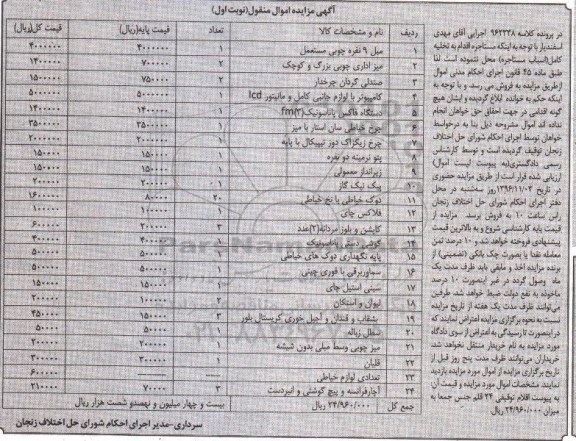 آگهی مزایده اموال منقول(نوبت اول)
در پرونده کلاسه ۹۶۲۳۳۸ اجرایی آقای مهدی
اسفندیار با توجه به اینکه مستاجره اقدام به تخلیه
کامل(اسباب مستاجره) محل ننموده است لذا
طبق ماده ۴۵ قانون اجرای احکام مدنی اموال
ازطریق مزایده به فروش می رسد و با توجه به
اینکه حکم به خوانده ابلاغ گردیده و ایشان هیچ
گونه اقدامی در جهت احقاق حق خواهان انجام
نداده اند اموال مشروحه ذیل بنا به درخواست
خواهان توسط اجرای احکام شورای حل اختلاف
زنجان توقیف گردیده است و توسط کارشناس
رسمی دادگستری(به پیوست لیست اموال)
ارزیابی شده قرار است از طریق مزایده حضوری
در تاریخ ۱۳۹۶/۱۱/۰۲ روز سه‌شنبه در محل
دفتر اجرای احکام شورای حل اختلاف زنجان
راس ساعت ۱۰ به فروش برسد. مزایده از
قیمت پایه کارشناسی شروع و به بالاترین قیمت
پیشنهادی فروخته خواهد شد و ۱۰ درصد ثمن
معامله نقدا یا بصورت چک بانکی (تضمینی) از
برنده مزایده اخذ و مابقی باید ظرف مدت یک
ماه وصول گردد در غیر اینصورت ۱۰ درصد
ماخوذه به نفع دولت ضبط خواهد شد. طرفین
می‌توانند ظرف مدت یک هفته از تاریخ مزایده
نسبت به نحوه برگزاری مزایده اعتراض نمایند که
در اینصورت تا رسیدگی به اعتراض از سوی دادگاه
مورد مزایده به نام خریدار منتقل نخواهد شد.
خریداران می‌توانند ظرف مدت پنج روز قبل از
تاریخ برگزاری مزایده از اموال مورد مزایده بازدید
نمایند. مشخصات اموال مورد مزایده و قیمت آن
به پیوست اقلام توقیفی ۲۴ قلم جنس جمعا به
میزان ۲۴/۹۶۰/۰۰۰ ریال
ردیف نام و مشخصات کالا تعداد قیمت پایه(ریال) قیمت کل(ریال)
۱ مبل ۹ نفره چوبی مستعمل ۱ ۴۰۰۰۰۰۰ ۴۰۰۰۰۰۰
۲ میز اداری چوبی بزرگ و کوچک ۲ ۷۰۰۰۰۰ ۱۴۰۰۰۰۰
۳ صندلی گردان چرخدار ۲ ۷۵۰۰۰۰ ۱۵۰۰۰۰۰
۴ کامپیوتر با لوازم جانبی کامل و مانیتور lcd ۱ ۵۰۰۰۰۰۰ ۵۰۰۰۰۰۰
۵ دستگاه فاکس پاناسونیک fm(۲) ۱ ۱۴۰۰۰۰۰ ۱۴۰۰۰۰۰
۶ چرخ خیاطی سان استار با میز ۱ ۳۵۰۰۰۰۰ ۳۵۰۰۰۰۰
۷ چرخ زیگزاگ دوز تیپیکال با پایه ۱ ۲۰۰۰۰۰۰ ۲۰۰۰۰۰۰
۸ پتو نرمینه دو نفره ۱ ۱۵۰۰۰۰ ۱۵۰۰۰۰
۹ زیرانداز معمولی ۱ ۱۵۰۰۰۰ ۱۵۰۰۰۰
۱۰ پیک نیک گاز ۱ ۲۰۰۰۰۰ ۲۰۰۰۰۰
۱۱ دوک خیاطی با نخ خیاطی ۲۰ ۸۰۰۰۰ ۱۶۰۰۰۰۰
۱۲ فلاکس چای ۱ ۱۰۰۰۰۰ ۱۰۰۰۰۰
۱۳ کاپشن و بلوز مردانه(۲)عدد ۳ ۲۰۰۰۰۰ ۶۰۰۰۰۰
۱۴ گوشی دستی پاناسونیک ۱ ۴۰۰۰۰۰ ۴۰۰۰۰۰
۱۵ پایه نگهداری دوک های خیاطی ۱ ۵۰۰۰۰۰ ۵۰۰۰۰۰
۱۶ سماوربرقی با قوری چینی ۱ ۵۰۰۰۰۰ ۵۰۰۰۰۰
۱۷ سینی استیل چای ۱ ۱۵۰۰۰۰ ۱۵۰۰۰۰
۱۸ لیوان و استکان ۲ ۱۰۰۰۰۰ ۲۰۰۰۰۰
۱۹ بشقاب و قندان و آجیل خوری کریستال بلور ۳ ۱۵۰۰۰۰ ۴۵۰۰۰۰
۲۰ سطل زباله ۱ ۵۰۰۰۰ ۵۰۰۰۰
۲۱ میز چوبی وسط مبلی بدون شیشه ۱ ۲۰۰۰۰۰ ۲۰۰۰۰۰
۲۲ قلیان ۱ ۳۰۰۰۰۰ ۳۰۰۰۰۰
۲۳ تعدادی لوازم خیاطی ۶۰۰۰۰۰
۲۴ آچارفرانسه و پیچ گوشتی و انبردست ۳ ۷۰۰۰۰ ۲۱۰۰۰۰
جمع کل ۲۴/۹۶۰/۰۰۰ ریال بیست و چهار میلیون و نهصدو شصت هزار ریال
سرداری-مدیر اجرای احکام شورای حل اختلاف زنجان